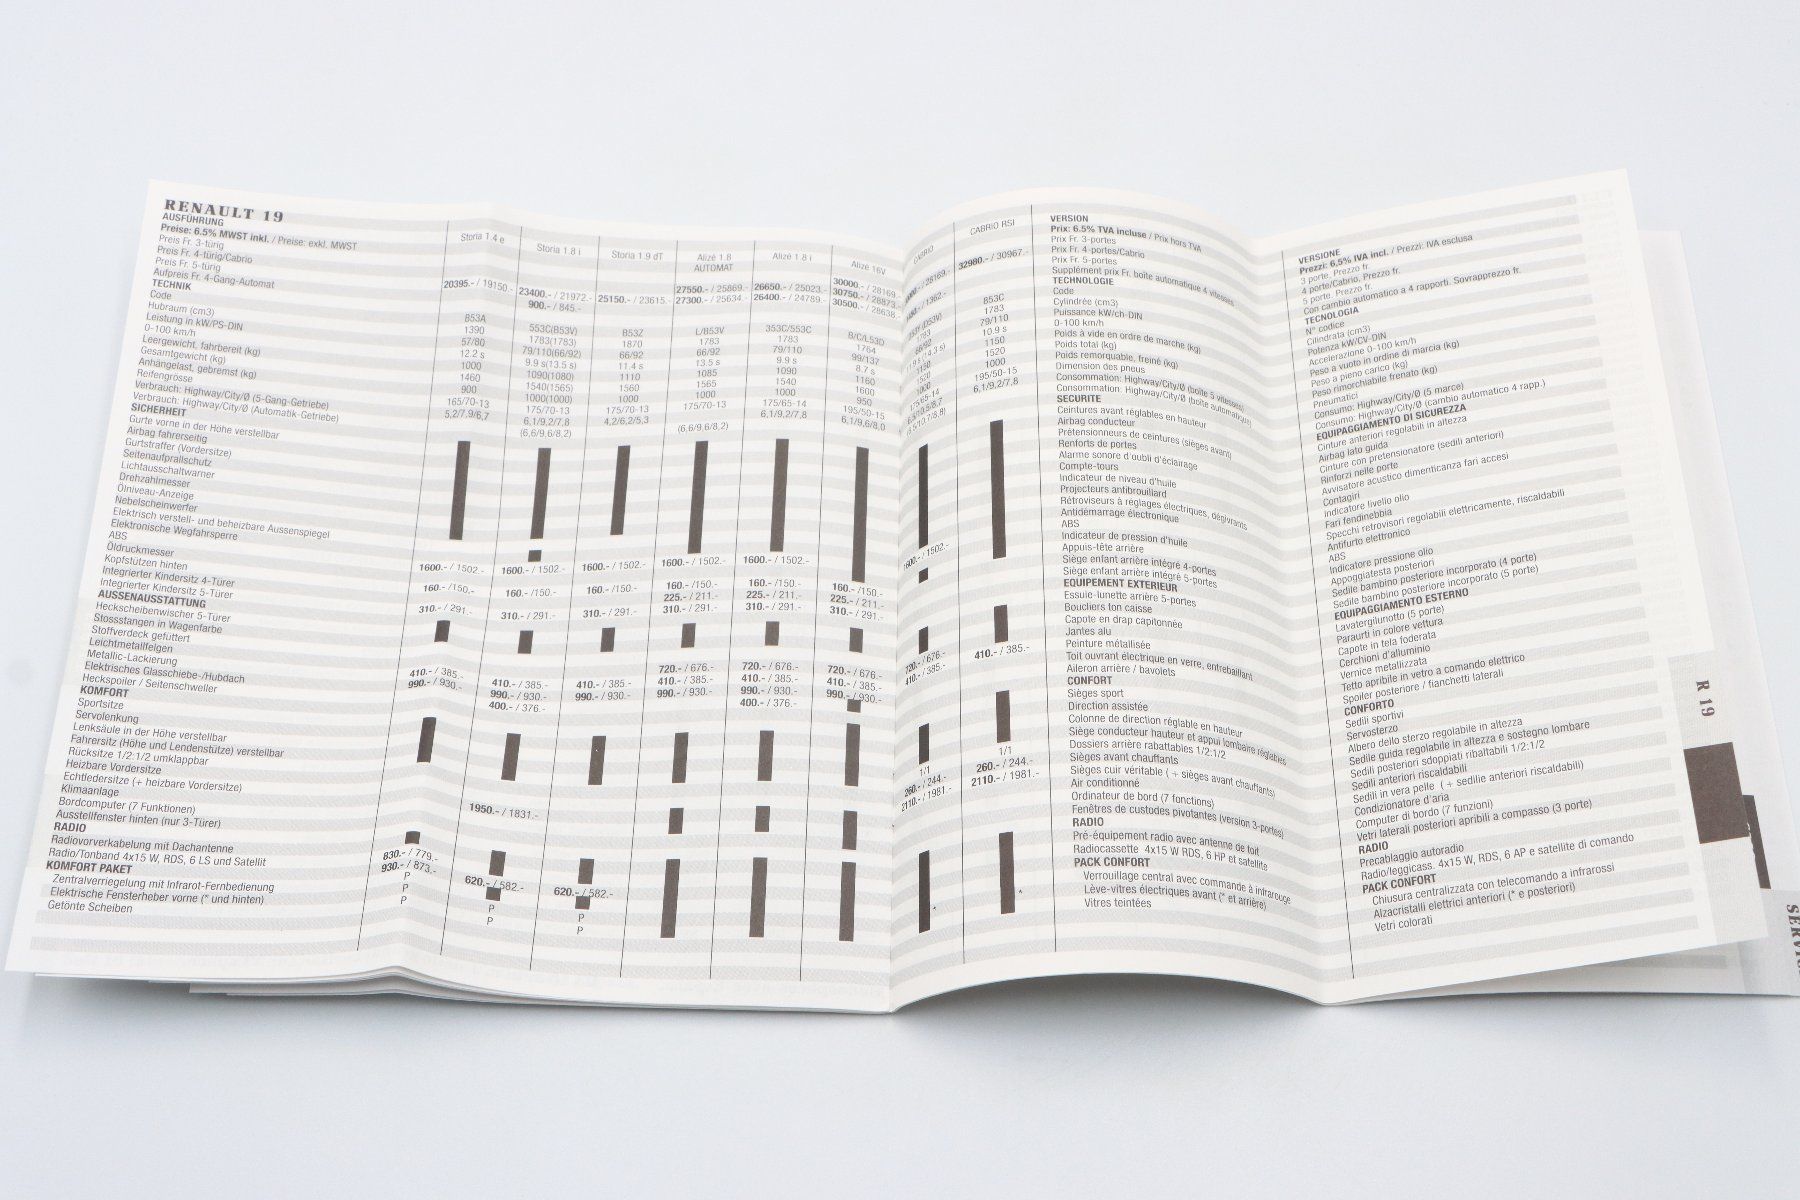 RENAULT 19
AUSFÜHRUNG
Preise: 6.5% MWST inkl. / Preise: exkl. MWST
Preis Fr. 3-türig
Preis Fr. 4-türig/Cabrio
Preis Fr. 5-türig
Aufpreis Fr. 4-Gang-Automat
TECHNIK
Code
Hubraum (cm3)
Leistung in kW/PS-DIN
0-100 km/h
Leergewicht, fahrbereit (kg)
Gesamtgewicht (kg)
Anhängelast, gebremst (kg)
Reifengrösse
Verbrauch: Highway/City/Ø (5-Gang-Getriebe)
Verbrauch: Highway/City/Ø (Automatik-Getriebe)
SICHERHEIT
Gurte vorne in der Höhe verstellbar
Airbag fahrerseitig
Gurtstraffer (Vordersitze)
Seitenaufprallschutz
Lichtausschaltwarner
Drehzahlmesser
Ölniveau-Anzeige
Nebelscheinwerfer
Elektrisch verstell- und beheizbare Aussenspiegel
Elektronische Wegfahrsperre
ABS
Öldruckmesser
Kopfstützen hinten
Integrierter Kindersitz 4-Türer
Integrierter Kindersitz 5-Türer
AUSSENAUSSTATTUNG
Heckscheibenwischer 5-Türer
Stossstangen in Wagenfarbe
Stoffverdeck gefüttert
Leichtmetallfelgen
Metallic-Lackierung
Elektrisches Glasschiebe-/Hubdach
Heckspoiler / Seitenschweller
KOMFORT
Sportsitze
Servolenkung
Lenksäule in der Höhe verstellbar
Fahrersitz (Höhe und Lendenstütze) verstellbar
Rücksitze 1/2:1/2 umklappbar
Heizbare Vordersitze
Echtledersitze (+ heizbare Vordersitze)
Klimaanlage
Bordcomputer (7 Funktionen)
Ausstellfenster hinten (nur 3-Türer)
RADIO
Radiovorverkabelung mit Dachantenne
Radio/Tonband 4x15 W, RDS, 6 LS und Satellit
KOMFORT PAKET
Zentralverriegelung mit Infrarot-Fernbedienung
Elektrische Fensterheber vorne (* und hinten)
Getönte Scheiben
Storia 1.4 e
20395.- / 19150.-
B53A
1390
57/80
12.2 s
1000
1460
900
165/70-13
5,2/7,9/6,7
1600.- / 1502.-
160.- /150.-
310.- / 291.-
410.- / 385.-
990.- / 930.-
830.- / 779.-
930.- / 873.-
P
P
P
Storia 1.8 i
23400.- / 21972.-
900.- / 845.-
553C(B53V)
1783(1783)
79/110(66/92)
9.9 s(13.5 s)
1090(1080)
1540(1565)
1000(1000)
175/70-13
6,1/9,2/7,8
(6,6/9,6/8,2)
1600.- / 1502.-
160.- /150.-
310.- / 291.-
410.- / 385.-
990.- / 930.-
400.- / 376.-
1950.- / 1831.-
620.- / 582.-
P
P
Storia 1.9 dT
25150.- / 23615.-
B53Z
1870
66/92
11.4 s
1110
1560
1000
175/70-13
4,2/6,2/5,3
1600.- / 1502.-
160.- /150.-
310.- / 291.-
410.- / 385.-
990.- / 930.-
620.- / 582.-
P
P
Alizé 1.8
AUTOMAT
27550.- / 25869.-
27300.- / 25634.-
L/B53V
1783
66/92
13.5 s
1085
1565
1000
175/70-13
(6,6/9,6/8,2)
1600.- / 1502.-
160.- /150.-
225.- / 211.-
310.- / 291.-
720.- / 676.-
410.- / 385.-
990.- / 930.-
Alizé 1.8 i
26650.- / 25023.-
26400.- / 24789.-
353C/553C
1783
79/110
9.9 s
1090
1540
1000
175/65-14
6,1/9,2/7,8
1600.- / 1502.-
160.- /150.-
225.- / 211.-
310.- / 291.-
720.- / 676.-
410.- / 385.-
990.- / 930.-
400.- / 376.-
Alizé 16V
30000.- / 28169.-
30750.- / 28873.-
30500.- / 28638.-
B/C/L53D
1764
99/137
8.7 s
1160
1600
950
195/50-15
6,1/9,6/8,0
160.- /150.-
225.- / 211.-
310.- / 291.-
720.- / 676.-
410.- / 385.-
990.- / 930.-
CABRIO
/ 28169.-
/ 1362.-
(D53V)
1783
66/92
1150
1520
1000
175/65-14
1600.- / 1502.-
720.- / 676.-
410.- / 385.-
1/1
260.- / 244.-
2110.- / 1981.-
*
CABRIO RSI
32980.- / 30967.-
853C
1783
79/110
10.9 s
1150
1520
1000
195/50-15
6,1/9,2/7,8
410.- / 385.-
1/1
260.- / 244.-
2110.- / 1981.-
*
VERSION
Prix: 6.5% TVA incluse / Prix hors TVA
Prix Fr. 3-portes
Prix Fr. 4-portes/Cabrio
Prix Fr. 5-portes
Supplément prix Fr. boîte automatique 4 vitesses
TECHNOLOGIE
Code
Cylindrée (cm3)
Puissance kW/ch-DIN
0-100 km/h
Poids à vide en ordre de marche (kg)
Poids total (kg)
Poids remorquable, freiné (kg)
Dimension des pneus
Consommation: Highway/City/Ø (boîte 5 vitesses)
Consommation: Highway/City/Ø (boîte automatique)
SECURITE
Ceintures avant réglables en hauteur
Airbag conducteur
Prétensionneurs de ceintures (sièges avant)
Renforts de portes
Alarme sonore d'oubli d'éclairage
Compte-tours
Indicateur de niveau d'huile
Projecteurs antibrouillard
Rétroviseurs à réglages électriques, dégivrants
Antidémarrage électronique
ABS
Indicateur de pression d'huile
Appuis-tête arrière
Siège enfant arrière intégré 4-portes
Siège enfant arrière intégré 5-portes
EQUIPEMENT EXTERIEUR
Essuie-lunette arrière 5-portes
Boucliers ton caisse
Capote en drap capitonnée
Jantes alu
Peinture métallisée
Toit ouvrant électrique en verre, entrebaillant
Aileron arrière / bavolets
CONFORT
Sièges sport
Direction assistée
Colonne de direction réglable en hauteur
Siège conducteur hauteur et appui lombaire réglables
Dossiers arrière rabattables 1/2:1/2
Sièges avant chauffants
Sièges cuir véritable ( + sièges avant chauffants)
Air conditionné
Ordinateur de bord (7 fonctions)
Fenêtres de custodes pivotantes (version 3-portes)
RADIO
Pré-équipement radio avec antenne de toit
Radiocassette 4x15 W RDS, 6 HP et satellite
PACK CONFORT
Verrouillage central avec commande à infrarouge
Lève-vitres électriques avant (* et arrière)
Vitres teintées
VERSIONE
Prezzi: 6,5% IVA incl. / Prezzi: IVA esclusa
3 porte, Prezzo fr.
4 porte/Cabrio, Prezzo fr.
5 porte, Prezzo fr.
Con cambio automatico a 4 rapporti. Sovrapprezzo fr.
TECNOLOGIA
N° codice
Cilindrata (cm3)
Potenza kW/CV-DIN
Accelerazione 0-100 km/h
Peso a vuoto in ordine di marcia (kg)
Peso a pieno carico (kg)
Peso rimorchiabile frenato (kg)
Pneumatici
Consumo: Highway/City/Ø (5 marce)
Consumo: Highway/City/Ø (cambio automatico 4 rapp.)
EQUIPAGGIAMENTO DI SICUREZZA
Cinture anteriori regolabili in altezza
Airbag lato guida
Cinture con pretensionatore (sedili anteriori)
Rinforzi nelle porte
Avvisatore acustico dimenticanza fari accesi
Contagiri
Indicatore livello olio
Fari fendinebbia
Specchi retrovisori regolabili elettricamente, riscaldabili
Antifurto elettronico
ABS
Indicatore pressione olio
Appoggiatesta posteriori
Sedile bambino posteriore incorporato (4 porte)
Sedile bambino posteriore incorporato (5 porte)
EQUIPAGGIAMENTO ESTERNO
Lavatergilunotto (5 porte)
Paraurti in colore vettura
Capote in tela foderata
Cerchioni d'alluminio
Vernice metallizzata
Tetto apribile in vetro a comando elettrico
Spoiler posteriore / fianchetti laterali
CONFORTO
Sedili sportivi
Servosterzo
Albero dello sterzo regolabile in altezza
Sedile guida regolabile in altezza e sostegno lombare
Sedili posteriori sdoppiati ribaltabili 1/2:1/2
Sedili anteriori riscaldabili
Sedili in vera pelle ( + sedilie anteriori riscaldabili)
Condizionatore d'aria
Computer di bordo (7 funzioni)
Vetri laterali posteriori apribili a compasso (3 porte)
RADIO
Precablaggio autoradio
Radio/leggicass. 4x15 W, RDS, 6 AP e satellite di comando
PACK CONFORT
Chiusura centralizzata con telecomando a infrarossi
Alzacristalli elettrici anteriori (* e posteriori)
Vetri colorati
R 19